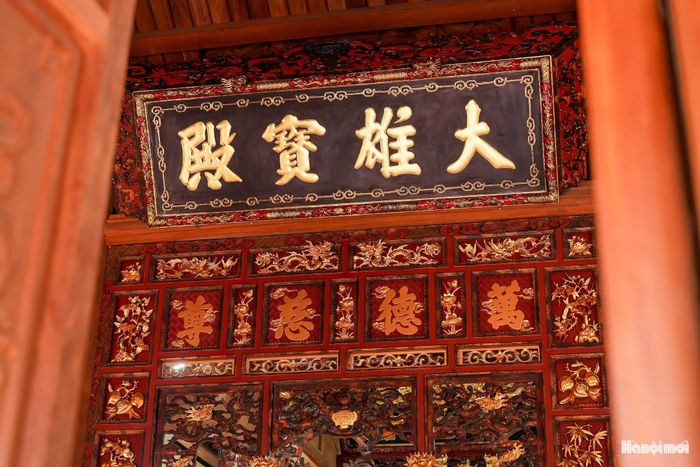 大雄寶殿
萬德慈尊
Hànộimới